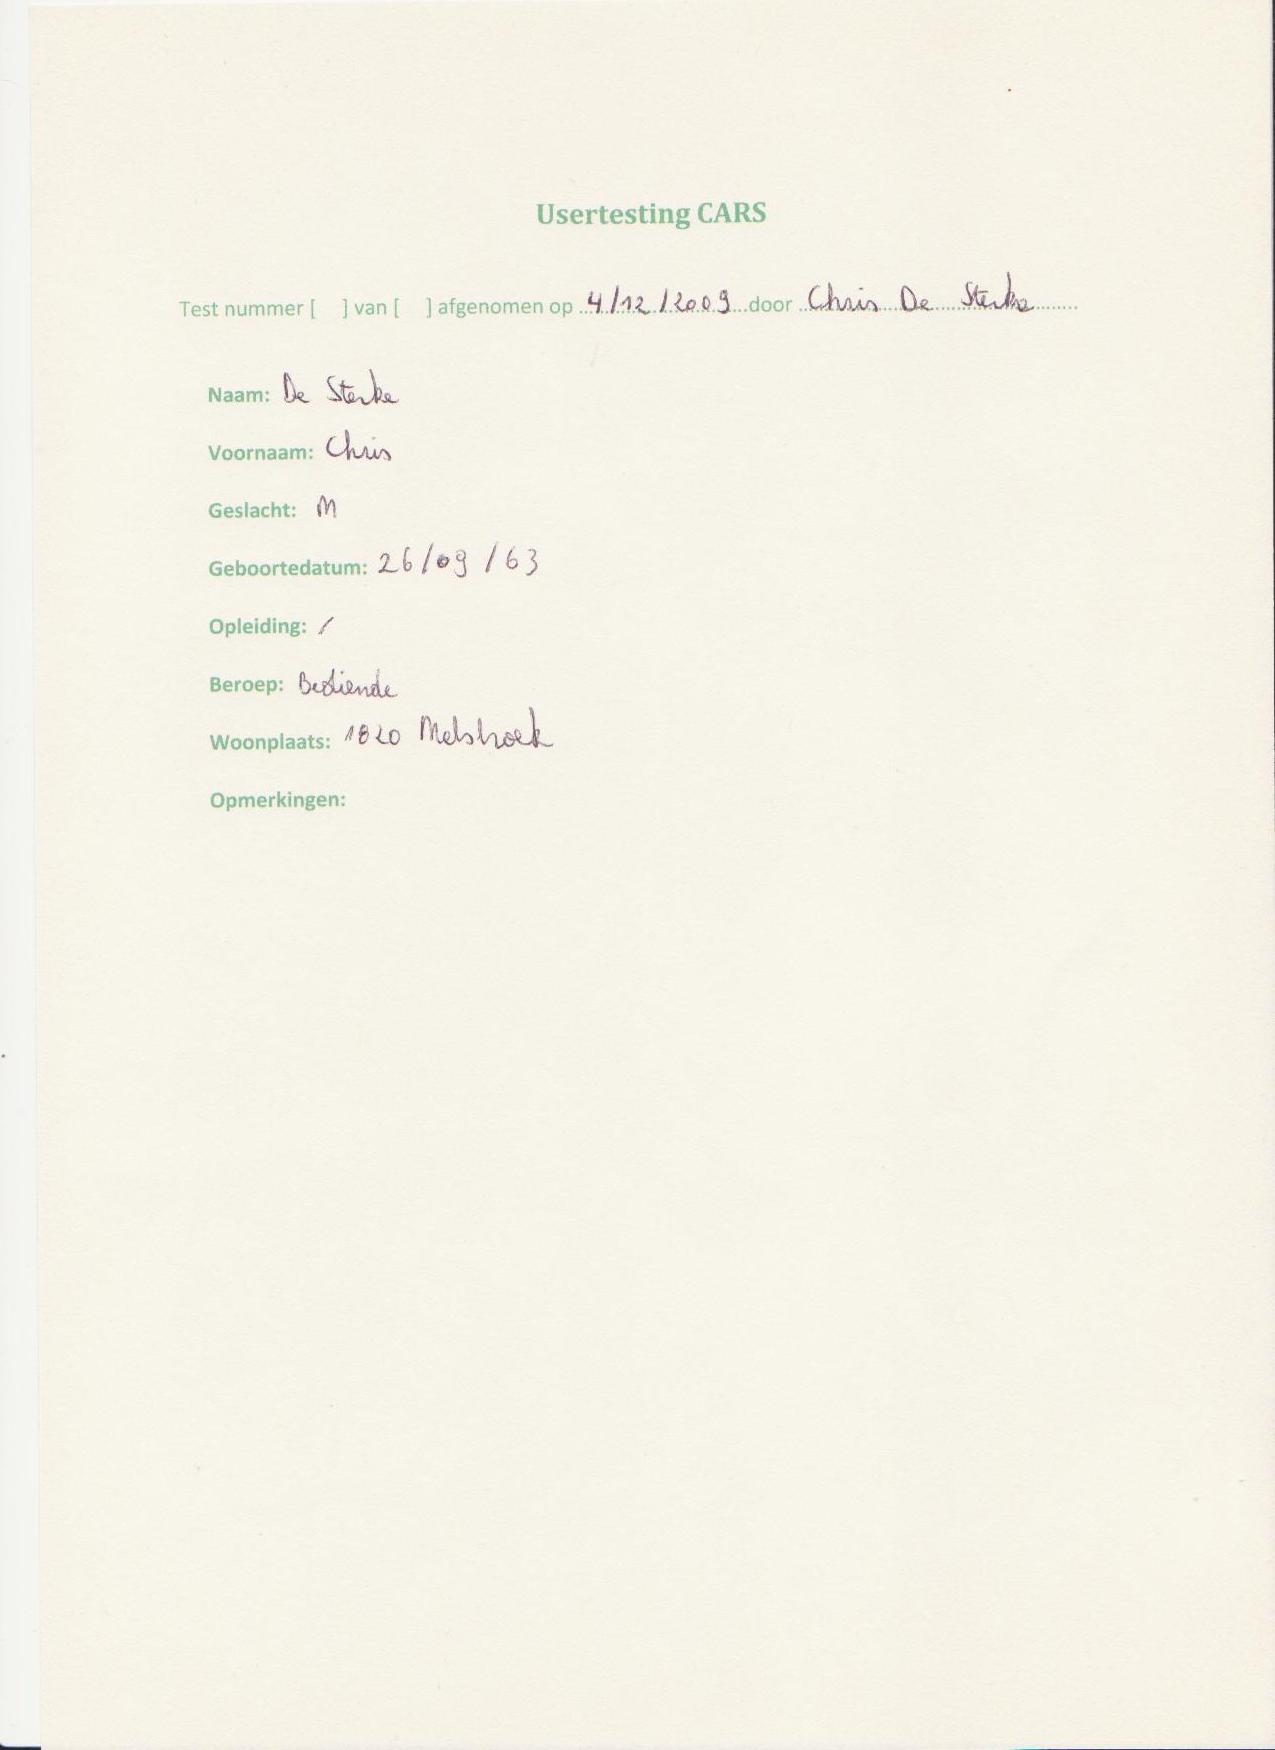 Usertesting CARS
Test nummer [ ] van [ ] afgenomen op 4/12/2009 door Chris De Sterke
Naam: De Sterke
Voornaam: Chris
Geslacht: M
Geboortedatum: 26/09/63
Opleiding: /
Beroep: Bediende
Woonplaats: 1820 Melsbroek
Opmerkingen: